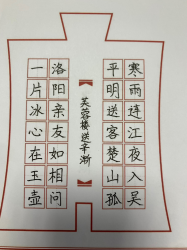 寒雨连江夜入吴
平明送客楚山孤
【芙蓉楼送辛渐】
洛阳亲友如相问
一片冰心在玉壶